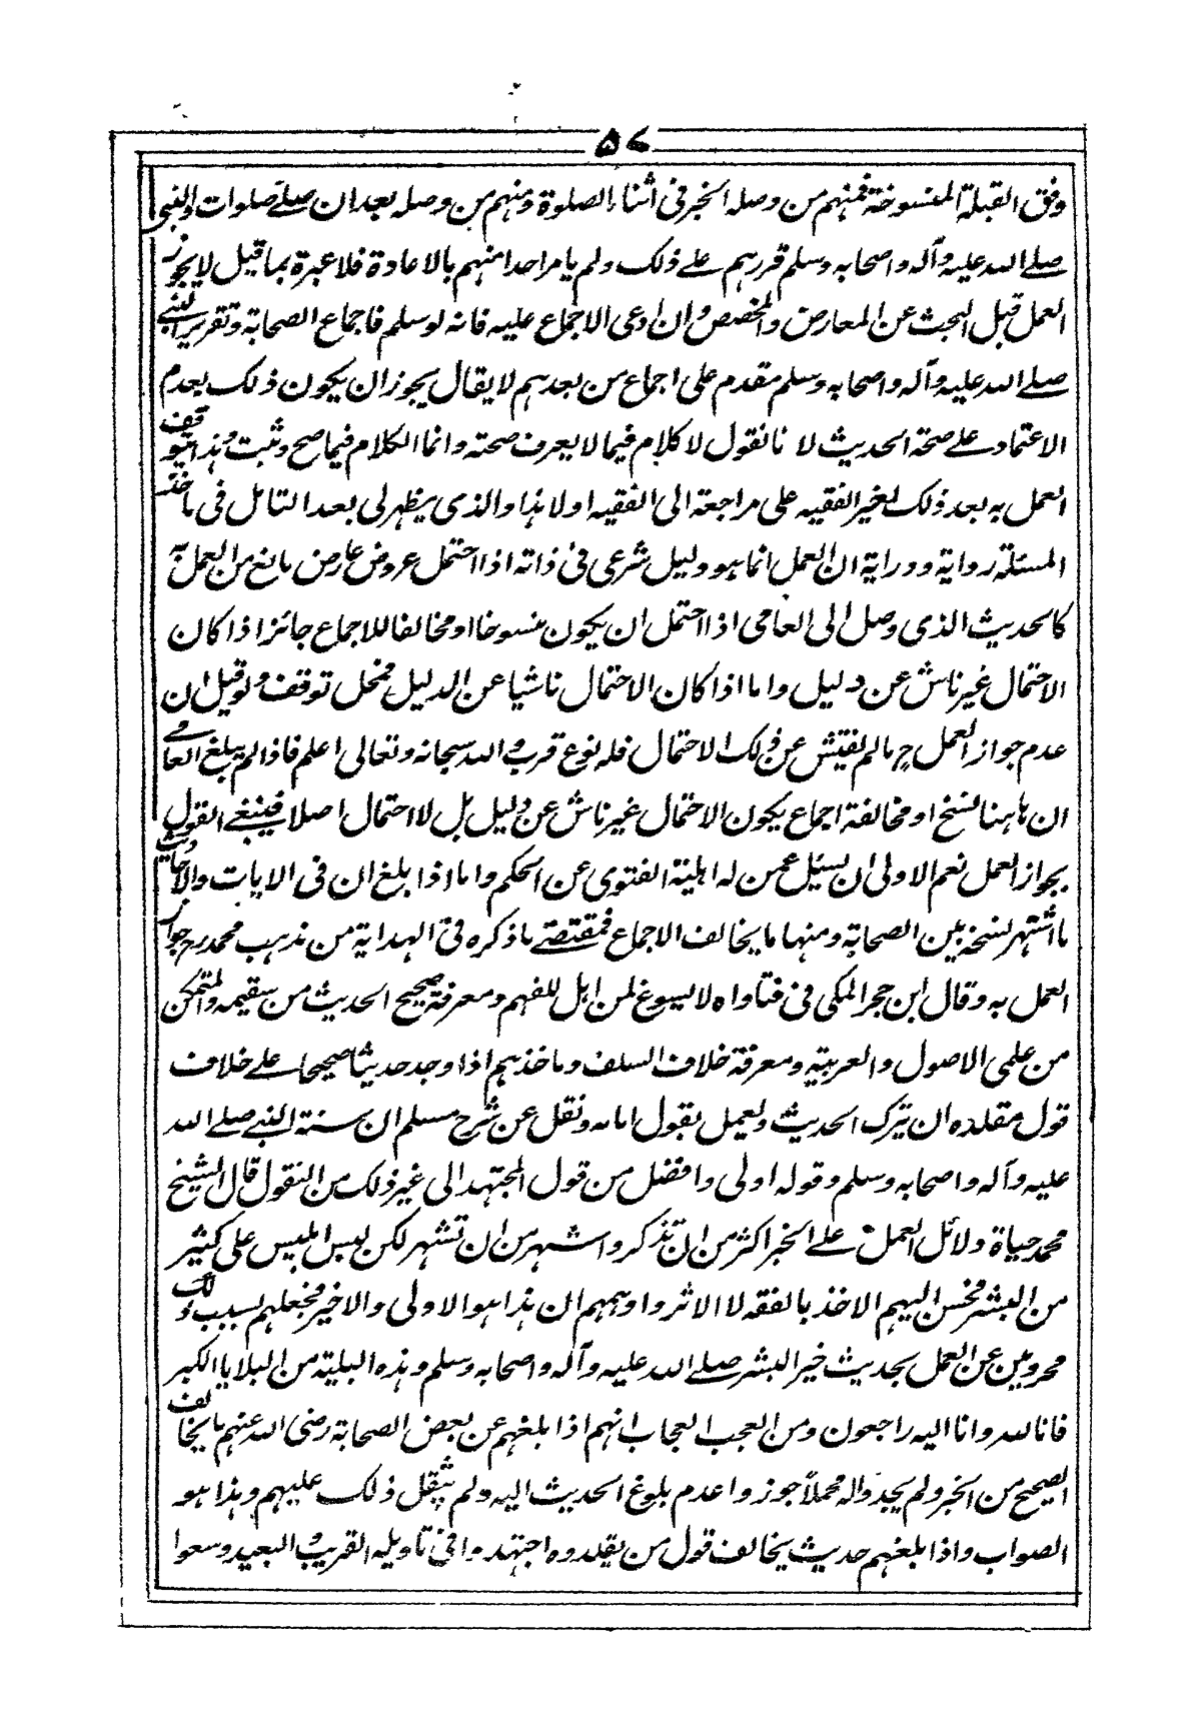 ٥٧
وفق القبلة المنسوخة فمنهم من وصله الخبر فى أثناء الصلوة ومنهم من وصله بعد ان صلے صلوات والنبى
صلے الله عليه وآله واصحابه وسلم قررهم علے ذلك ولم يامر احدا منهم بالاعادة فلا عبرة بما قيل لا يجوز
العمل قبل البحث عن المعارض والمخصص وان ادعى الاجماع عليه فانه لو سلم فاجماع الصحابة وتقرير النبے
صلے الله عليه وآله واصحابه وسلم مقدم على اجماع من بعدهم لا يقال يجوز ان يكون ذلك بعدم
الاعتماد علے صحة الحديث لا نا نقول لا كلام فيما لا يعرف صحته وانما الكلام فيما صح وثبت وهذا ايتوقف
العمل به بعد ذلك لغير الفقيه على مراجعة الى الفقيه او لا هذا والذى يظهر لى بعد التامل فى ماخذ
المسئلة رواية ودراية ان العمل انما هو دليل شرعى فى ذاته اذا احتمل عروض عارض مانع من العمل به
كالحديث الذى وصل الى العامى اذا احتمل ان يكون منسوخا او مخالفا للاجماع جائز اذا كان
الاحتمال غير ناش عن دليل واما اذا كان الاحتمال ناشيا عن الدليل فمحل توقف ولو قيل ان
عدم جواز العمل ح مالم يفتش عن ذلك الاحتمال فله نوع قرب والله سبحانه وتعالى اعلم فاذا لم يبلغ العامے
ان ههنا نسخ او مخالفة اجماع يكون الاحتمال غير ناش عن دليل بل لا احتمال اصلا فينبغے القول
بجواز العمل نعم الاولى ان يسئل عمن له اهلية الفتوى عن الحكم واما اذا بلغ ان فى الايات والاحاديث
ما اشتهر نسخه بين الصحابة ومنها ما يخالف الاجماع فمقتضے ما ذكره فى الهداية من مذهب محمد رح جواز
العمل به وقال ابن حجر المكى فى فتاواه لا يسوغ لمن اهل للفهم ومعرفة صحيح الحديث من سقيمه والمتمكن
من علمى الاصول والعربية ومعرفة خلاف السلف وماخذهم اذا وجد حديثا صحيحا علے خلاف
قول مقلده ان يترك الحديث ويعمل بقول امامه ونقل عن شرح مسلم ان سنة النبے صلے الله
عليه وآله واصحابه وسلم وقوله اولى وافضل من قول المجتهد الى غير ذلك من النقول قال الشيخ
محمد حياة ودلائل العمل علے الخبر اكثر من ان تذكر واشهر من ان تشهر لكن لبس ابليس على كثير
من البشر فحسن اليهم الاخذ بالفقه لا الاثر واوهمهم ان هذا هو الاولى والاخير فجعلهم بسبب ذلك
محرومين عن العمل بحديث خير البشر صلے الله عليه وآله واصحابه وسلم وهذه البلية من البلايا الكبر
فانا لله وانا اليه راجعون ومن العجب العجاب انهم اذا بلغهم عن بعض الصحابة رضى الله عنهم ما يخالف
الصحيح من الخبر ولم يجدوا له محملاً جوزوا عدم بلوغ الحديث اليه ولم يثقل ذلك عليهم وهذا هو
الصواب واذا بلغهم حديث يخالف قول من يقلدوه اجتهدوا فى تاويله القريب والبعيد وسعوا